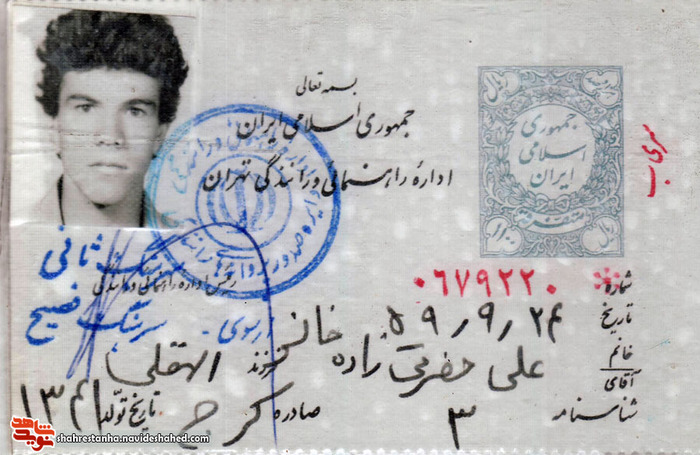 بسمه تعالی
جمهوری اسلامی ایران
اداره راهنمائی و رانندگی تهران
جمهوری
اسلامی
ایران
ریال
۱۰۰
ریال
سری ب
شماره ۰۶۷۹۲۲۰
تاریخ ۵۹/۹/۲۴
خانم
آقای علی حضرتی زاده خانی فرزند
شناسنامه ۳ صادره کرج تاریخ تولد ۱۳۴۱
رئیس اداره راهنمائی و رانندگی
سرهنگ فصیح
نوید شاهد
shahrestanha.navideshahed.com